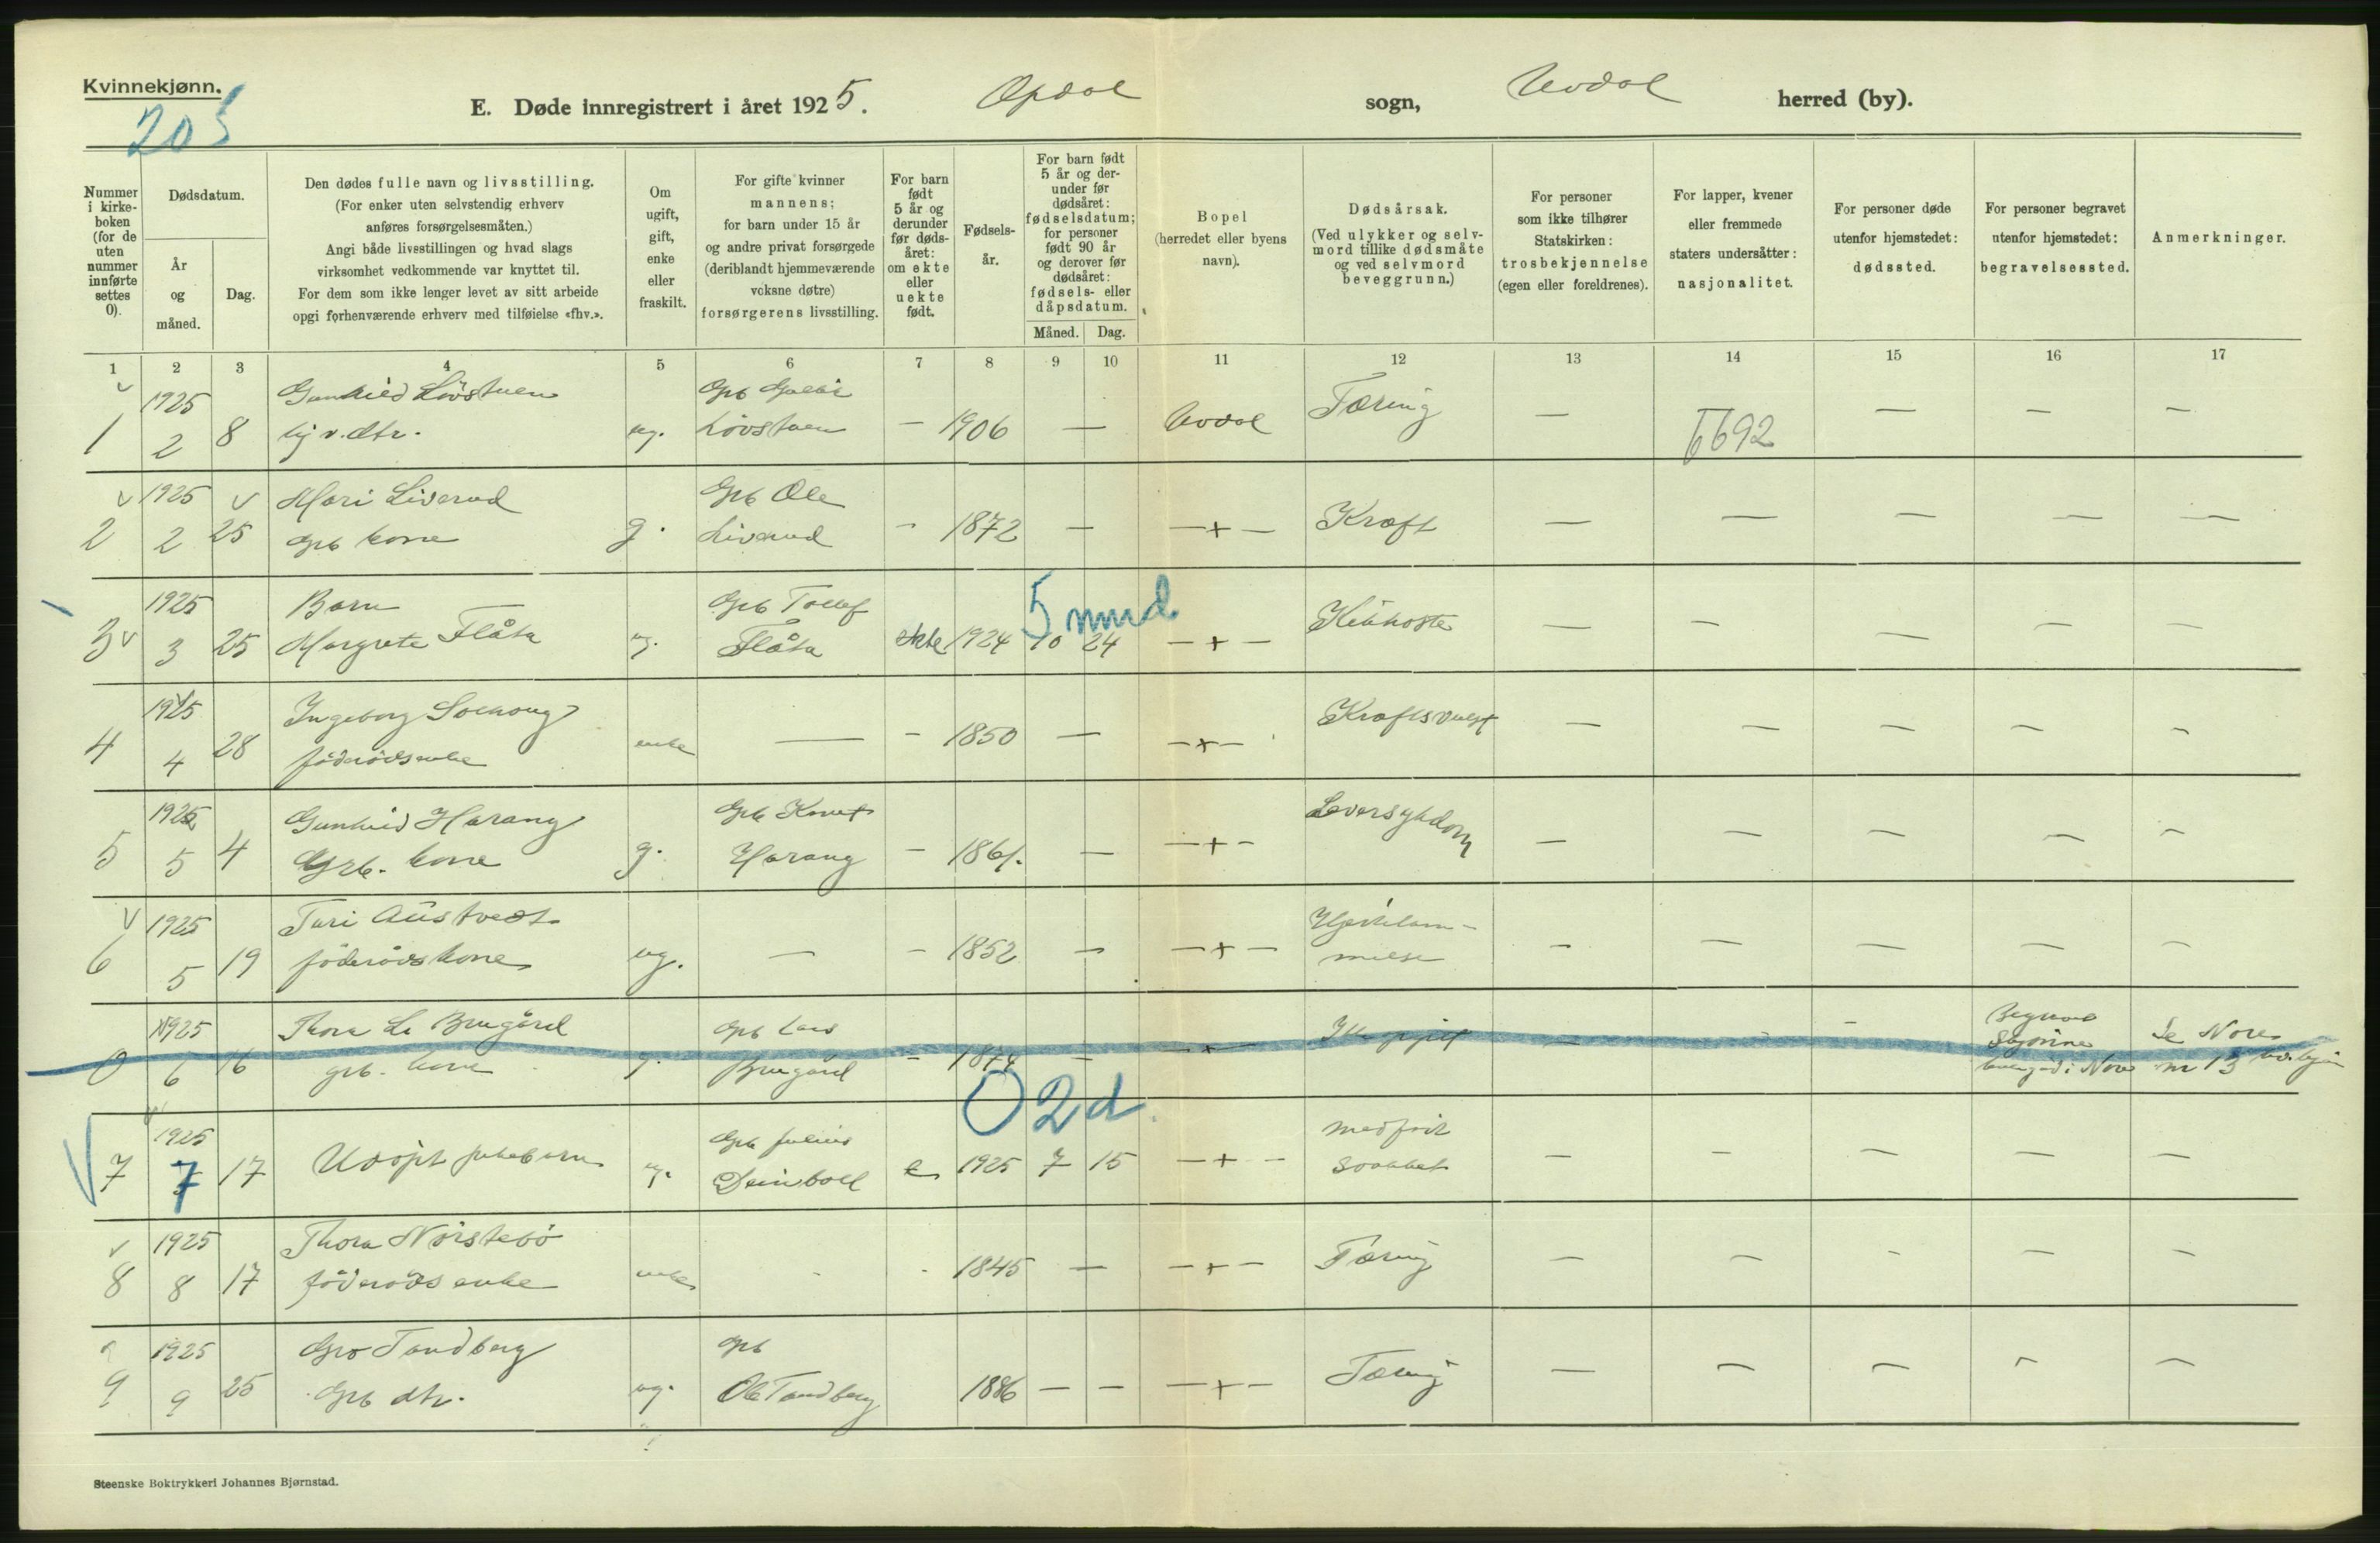 Kvinnekjønn.
205
E. Døde innregistrert i året 1925. Opdal sogn, Uvdal herred (by).
Nummer i kirke- boken (for de uten nummer innførte settes 0).
Dødsdatum.
År og måned.
Dag.
Den dødes fulle navn og livsstilling.
(For enker uten selvstendig erhverv
anføres forsørgelsesmåten.)
Angi både livsstillingen og hvad slags
virksomhet vedkommende var knyttet til.
For dem som ikke lenger levet av sitt arbeide
opgi forhenværende erhverv med tilføielse «fhv.».
Om ugift, gift, enke eller fraskilt.
For gifte kvinner
mannens;
for barn under 15 år
og andre privat forsørgede
(deriblandt hjemmeværende
voksne døtre)
forsørgerens livsstilling.
For barn født 5 år og derunder før døds- året: om ekte eller uekte født.
Fødsels- år.
For barn født 5 år og der- under før dødsåret: fødselsdatum; for personer født 90 år og derover før dødsåret: fødsels- eller dåpsdatum.
Måned. Dag.
Bopel
(herredet eller byens
navn).
Dødsårsak.
(Ved ulykker og selv-
mord tillike dødsmåte
og ved selvmord
beveggrunn.)
For personer
som ikke tilhører
Statskirken:
trosbekjennelse
(egen eller foreldrenes).
For lapper, kvener
eller fremmede
staters undersåtter:
nasjonalitet.
For personer døde
utenfor hjemstedet:
dødssted.
For personer begravet
utenfor hjemstedet:
begravelsessted.
Anmerkninger.
1 2 3 4 5 6 7 8 9 10 11 12 13 14 15 16 17
1925 Gunhild Lövstuen Grb
1 2 8 ug. Lövstuen – 1906 — Uvdal Tæring — 6692 — — —
1925 Mari Liverud Grb Ole
2 2 25 Grb kone g. Liverud – 1872 — —+— Kræft — — — — —
1925 Barn Grb Tollef 5 mnd
3 3 25 Margrete Flåta ug. Flåta ekte 1924 10 24 —+— Kikhoste — — — — —
1925 Ingeborg
4 4 28 föderådsenke enke — – 1850 — —+— Kræftsvulst — — — — —
1925 Gunhild Harang Grb Knut
5 5 4 Grb. kone g. Harang – 1861. — —+— Leversykdom — — — — —
1925 Turi Austvedt
6 5 19 föderådskone ug. — – 1852 — —+— Hjertelam-
melse — — — — —
1925 Thora L. Brugård Grb Lars Begravet Skjönne Se Nore
0 6 16 grb. kone g. Brugård – 1874 — —+— — – – i Nore nr 13
O 2 d.
1925 Grb Julius medfödt
7 7 17 Udöpt pikebarn ug. Deinboll e 1925 7 15 —+— svakhet — — — — —
1925 Thora Nörstebö
8 8 17 föderåds enke enke - - 1845 — —+— Tæring — — — — —
1925 Gro Tandberg Grb
9 9 25 Grb dtr. ug. Ole Tandberg 1886 — — —+— Tæring — — — — —
Steenske Boktrykkeri Johannes Bjørnstad.